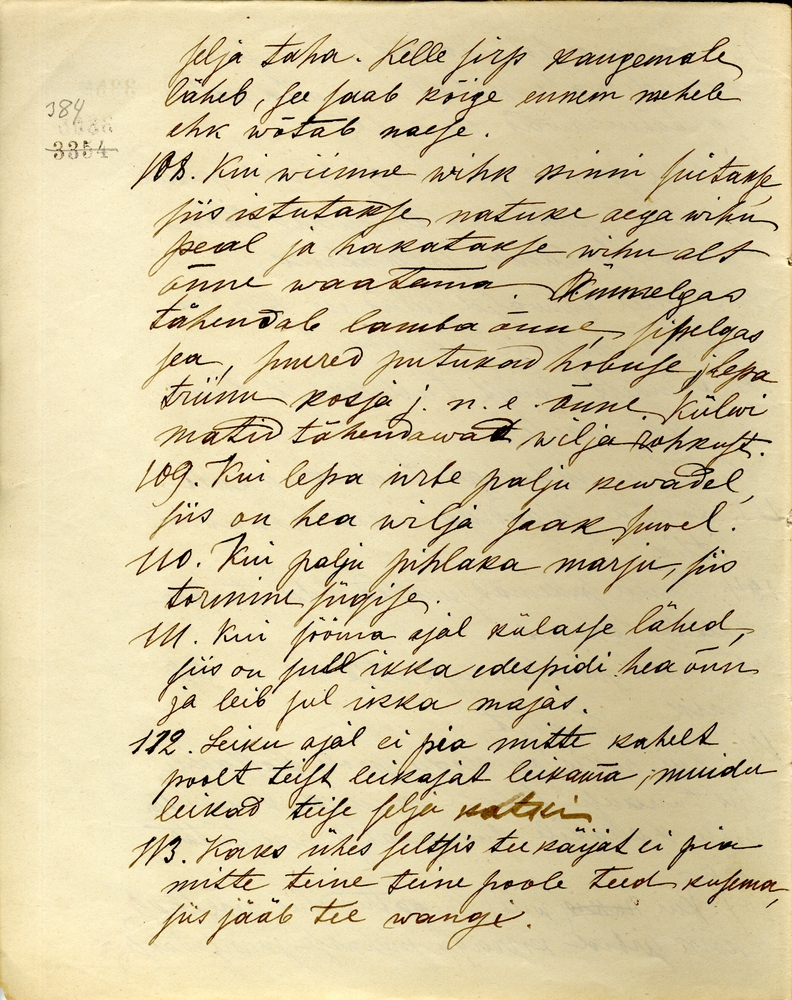 selja taha. Kelle sirp kaugemale
läheb, see saab kõige ennem mehele
ehk wõtab naese.
384
3354
108. Kui wiimne wihk kinni suitakse,
siis istutakse natuke aega wihu
peal ja hakatakse wihu alt
õnne waatama. Kümnelgas
tähendab lamba õnne, sipelgas
sea, suured putukad hobuse, lepa
triinu kosja j. n. e. õnne. Külwi
matid tähendawad wilja rohkust.
109. Kui lepa urbe palju kewadel,
siis on hea wilja saak suwel.
110. Kui palju pihlaka marju, siis
tormine sügise.
111. Kui sööma ajal külasse lähed,
siis on sull ikka edespidi hea õnn
ja leib sul ikka majas.
112. Leiku ajal ei pia mitte kahelt
poolt teist leikajat leikama, muidu
leikad teise selja katki
113. Kaks ühes seltsis tee käijat ei pia
mitte teine teine poole teed kusema,
siis jääb tee wangi.